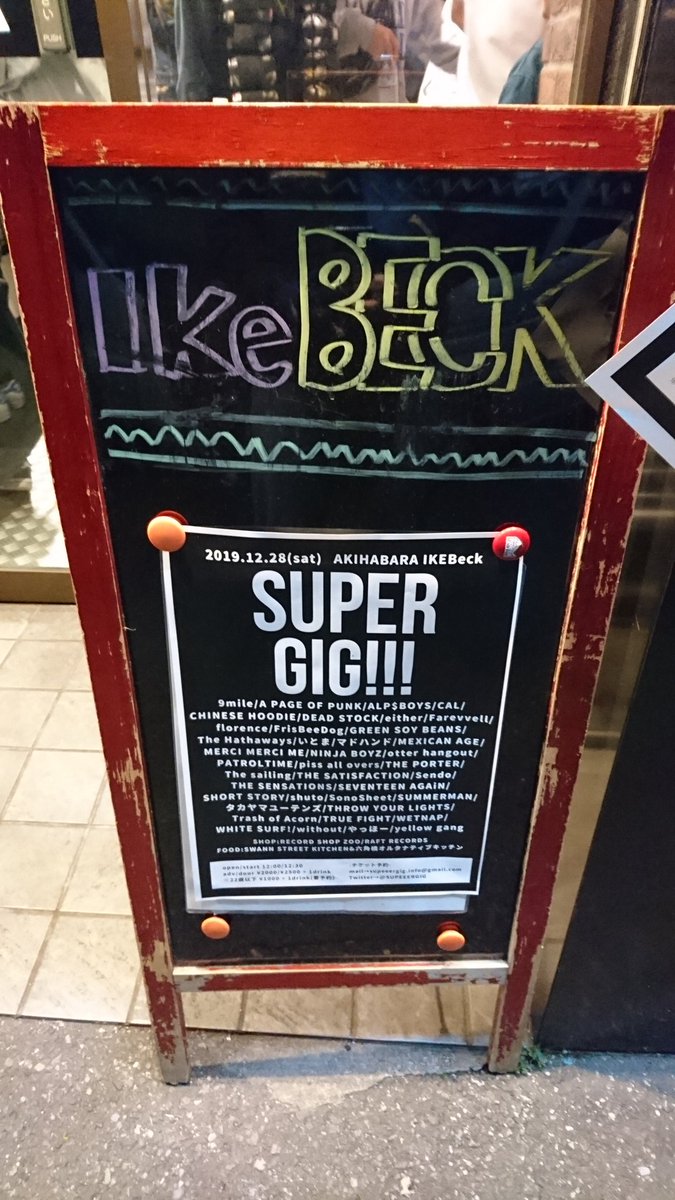 PUSH
IKe BECK
2019.12.28(sat) AKIHABARA IKEBeck
SUPER
GIG!!!
9mile/A PAGE OF PUNK/ALP$BOYS/CAL/
CHINESE HOODIE/DEAD STOCK/either/Farevvell/
florence/FrisBeeDog/GREEN SOY BEANS/
The Hathaways/いとま/マドハンド/MEXICAN AGE/
MERCI MERCI ME/NINJA BOYZ/otter hangout/
PATROLTIME/piss all overs/THE PORTER/
The sailing/THE SATISFACTION/Sendo/
THE SENSATIONS/SEVENTEEN AGAiN/
SHORT STORY/shuto/SonoSheet/SUMMERMAN/
タカヤマユーテンズ/THROW YOUR LIGHTS/
Trash of Acorn/TRUE FIGHT/WETNAP/
WHITE SURF!/without/やっほー/yellow gang
SHOP:RECORD SHOP ZOO/RAFT RECORDS
FOOD:SWANN STREET KITCHEN&六角橋オルタナティブキッチン
open/start 12:00/12:30
adv/door ¥2000/¥2500 + 1drink
※22歳以下 ¥1000 + 1drink(要予約)
チケット予約
mail→supeeergig.info@gmail.com
Twitter→@SUPEEERGIG